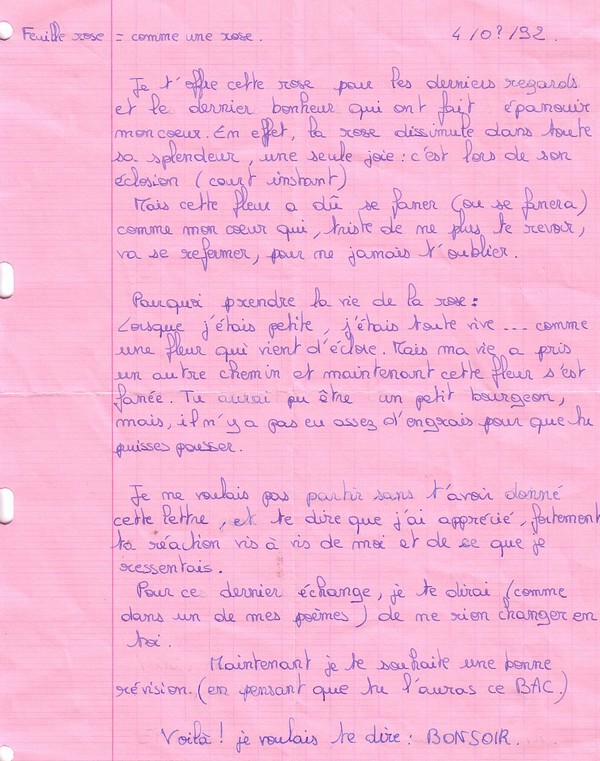 Feuille rose = comme une rose. 4/0?/92.
Je t'offre cette rose pour les derniers regards
et le dernier bonheur qui ont fait épanouir
mon coeur. En effet, la rose dissimule dans toute
sa splendeur, une seule joie : c'est lors de son
éclosion (court instant)
Mais cette fleur a dû se faner (ou se fanera)
comme mon coeur qui, triste de ne plus te revoir,
va se refermer, pour ne jamais t'oublier.
Pourquoi prendre la vie de la rose :
Lorsque j'étais petite, j'étais toute vive ... comme
une fleur qui vient d'éclore. Mais ma vie a pris
un autre chemin et maintenant cette fleur s'est
fanée. Tu aurai pu être un petit bourgeon,
mais, il n'y a pas eu assez d'engrais pour que tu
puisses pousser.
Je me voulais pas partir sans t'avoir donné
cette lettre, et te dire que j'ai apprécié, fortement
ta réaction vis à vis de moi et de ce que je
ressentais.
Pour ce dernier échange, je te dirai (comme
dans un de mes poèmes) de ne rien changer en
toi.
Maintenant je te souhaite une bonne
révision. (en pensant que tu l'auras ce BAC.)
Voilà ! je voulais te dire : BONSOIR.